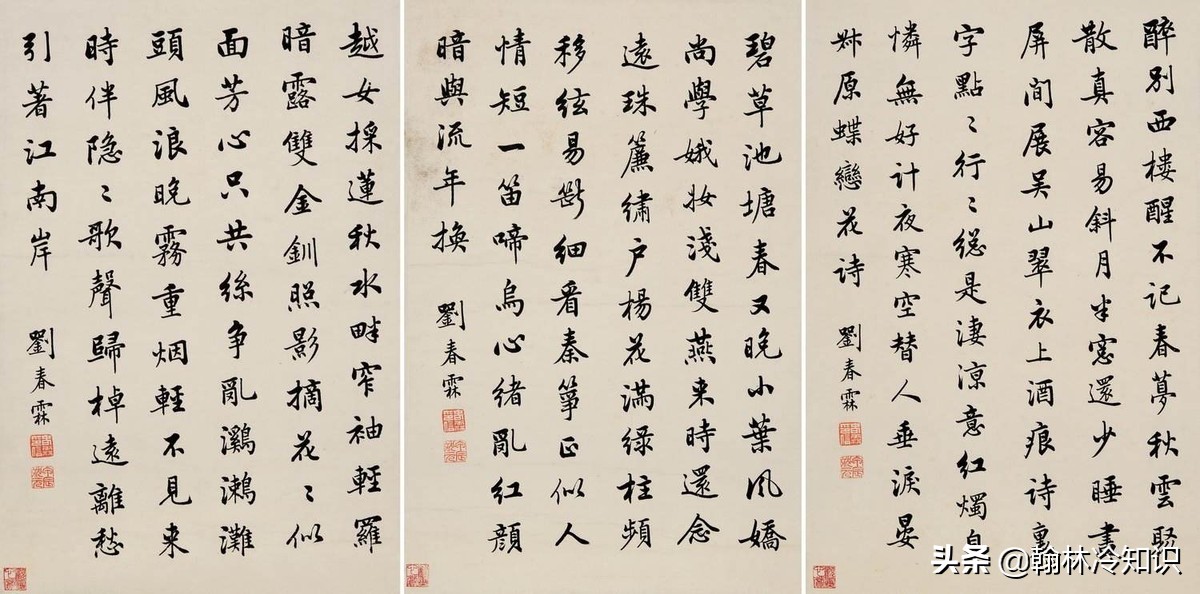 醉别西樓醒不記春夢秋雲聚
散真容易斜月半窓還少睡畫
屏间展吴山翠衣上酒痕詩裏
字點〻行〻総是凄涼意紅燭自
憐無好计夜寒空替人垂淚晏
叔原蝶戀花詩 劉春霖
碧草池塘春又晚小葉风嬌
尚學娥妝淺雙燕来時還念
遠珠簾繡户楊花滿緑柱頻
移絃易斷細看秦箏正似人
情短一笛啼烏心绪亂紅顔
暗與流年換 劉春霖
越女採蓮秋水畔窄袖輕羅
暗露雙金釧照影摘花〻似
面芳心只共絲争亂鸂鶒灘
頭風浪晚霧重烟輕不見来
時伴隐〻歌聲歸棹遠離愁
引著江南岸 劉春霖
头条 @翰林冷知识